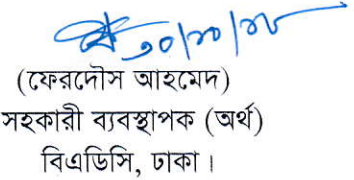 ৩০/১০/১৮
(ফেরদৌস আহমেদ)
সহকারী ব্যবস্থাপক (অর্থ)
বিএডিসি, ঢাকা।